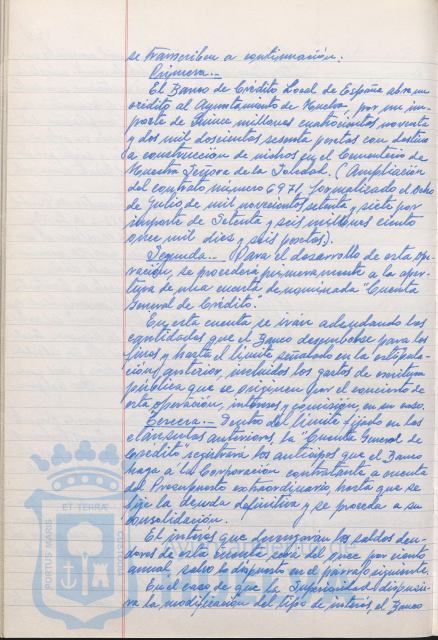 se transcriben a continuación:
Primera.-
El Banco de Crédito Local de España abre un
crédito al Ayuntamiento de Huelva, por un im-
porte de Quince millones cuatrocientas noventa
y dos mil doscientas sesenta pesetas con destino
a construcción de nichos en el Cementerio de
Nuestra Señora de la Soledad. (Ampliación
del contrato número 6971, formalizado el Ocho
de Julio de mil novecientos setenta y siete por
importe de Setenta y seis millones ciento
once mil diez y seis pesetas).
Segunda.- Para el desarrollo de esta ope-
ración, se procederá primeramente a la aper-
tura de una cuenta denominada "Cuenta
General de Crédito".
En esta cuenta se irán adeudando las
cantidades que el Banco desembolse para los
fines y hasta el límite señalado en la estipula-
ción anterior, incluidos los gastos de escritura
pública que se originen por el concierto de
esta operación, intereses y comisión, en su caso.
Tercera.- Dentro del límite fijado en las
cláusulas anteriores, la "Cuenta General de
Crédito" registrará los anticipos que el Banco
haga a la Corporación contratante a cuenta
del Presupuesto extraordinario, hasta que se
fije la deuda definitiva y se proceda a su
consolidación.
El interés que devengarán los saldos deu-
dores de esta cuenta será del once por ciento
anual, salvo lo dispuesto en el párrafo siguiente.
En el caso de que la Superioridad dispusie-
ra la modificación del tipo de interés, el Banco
PORTUS MARIS
ET TERRÆ
CUSTODIA